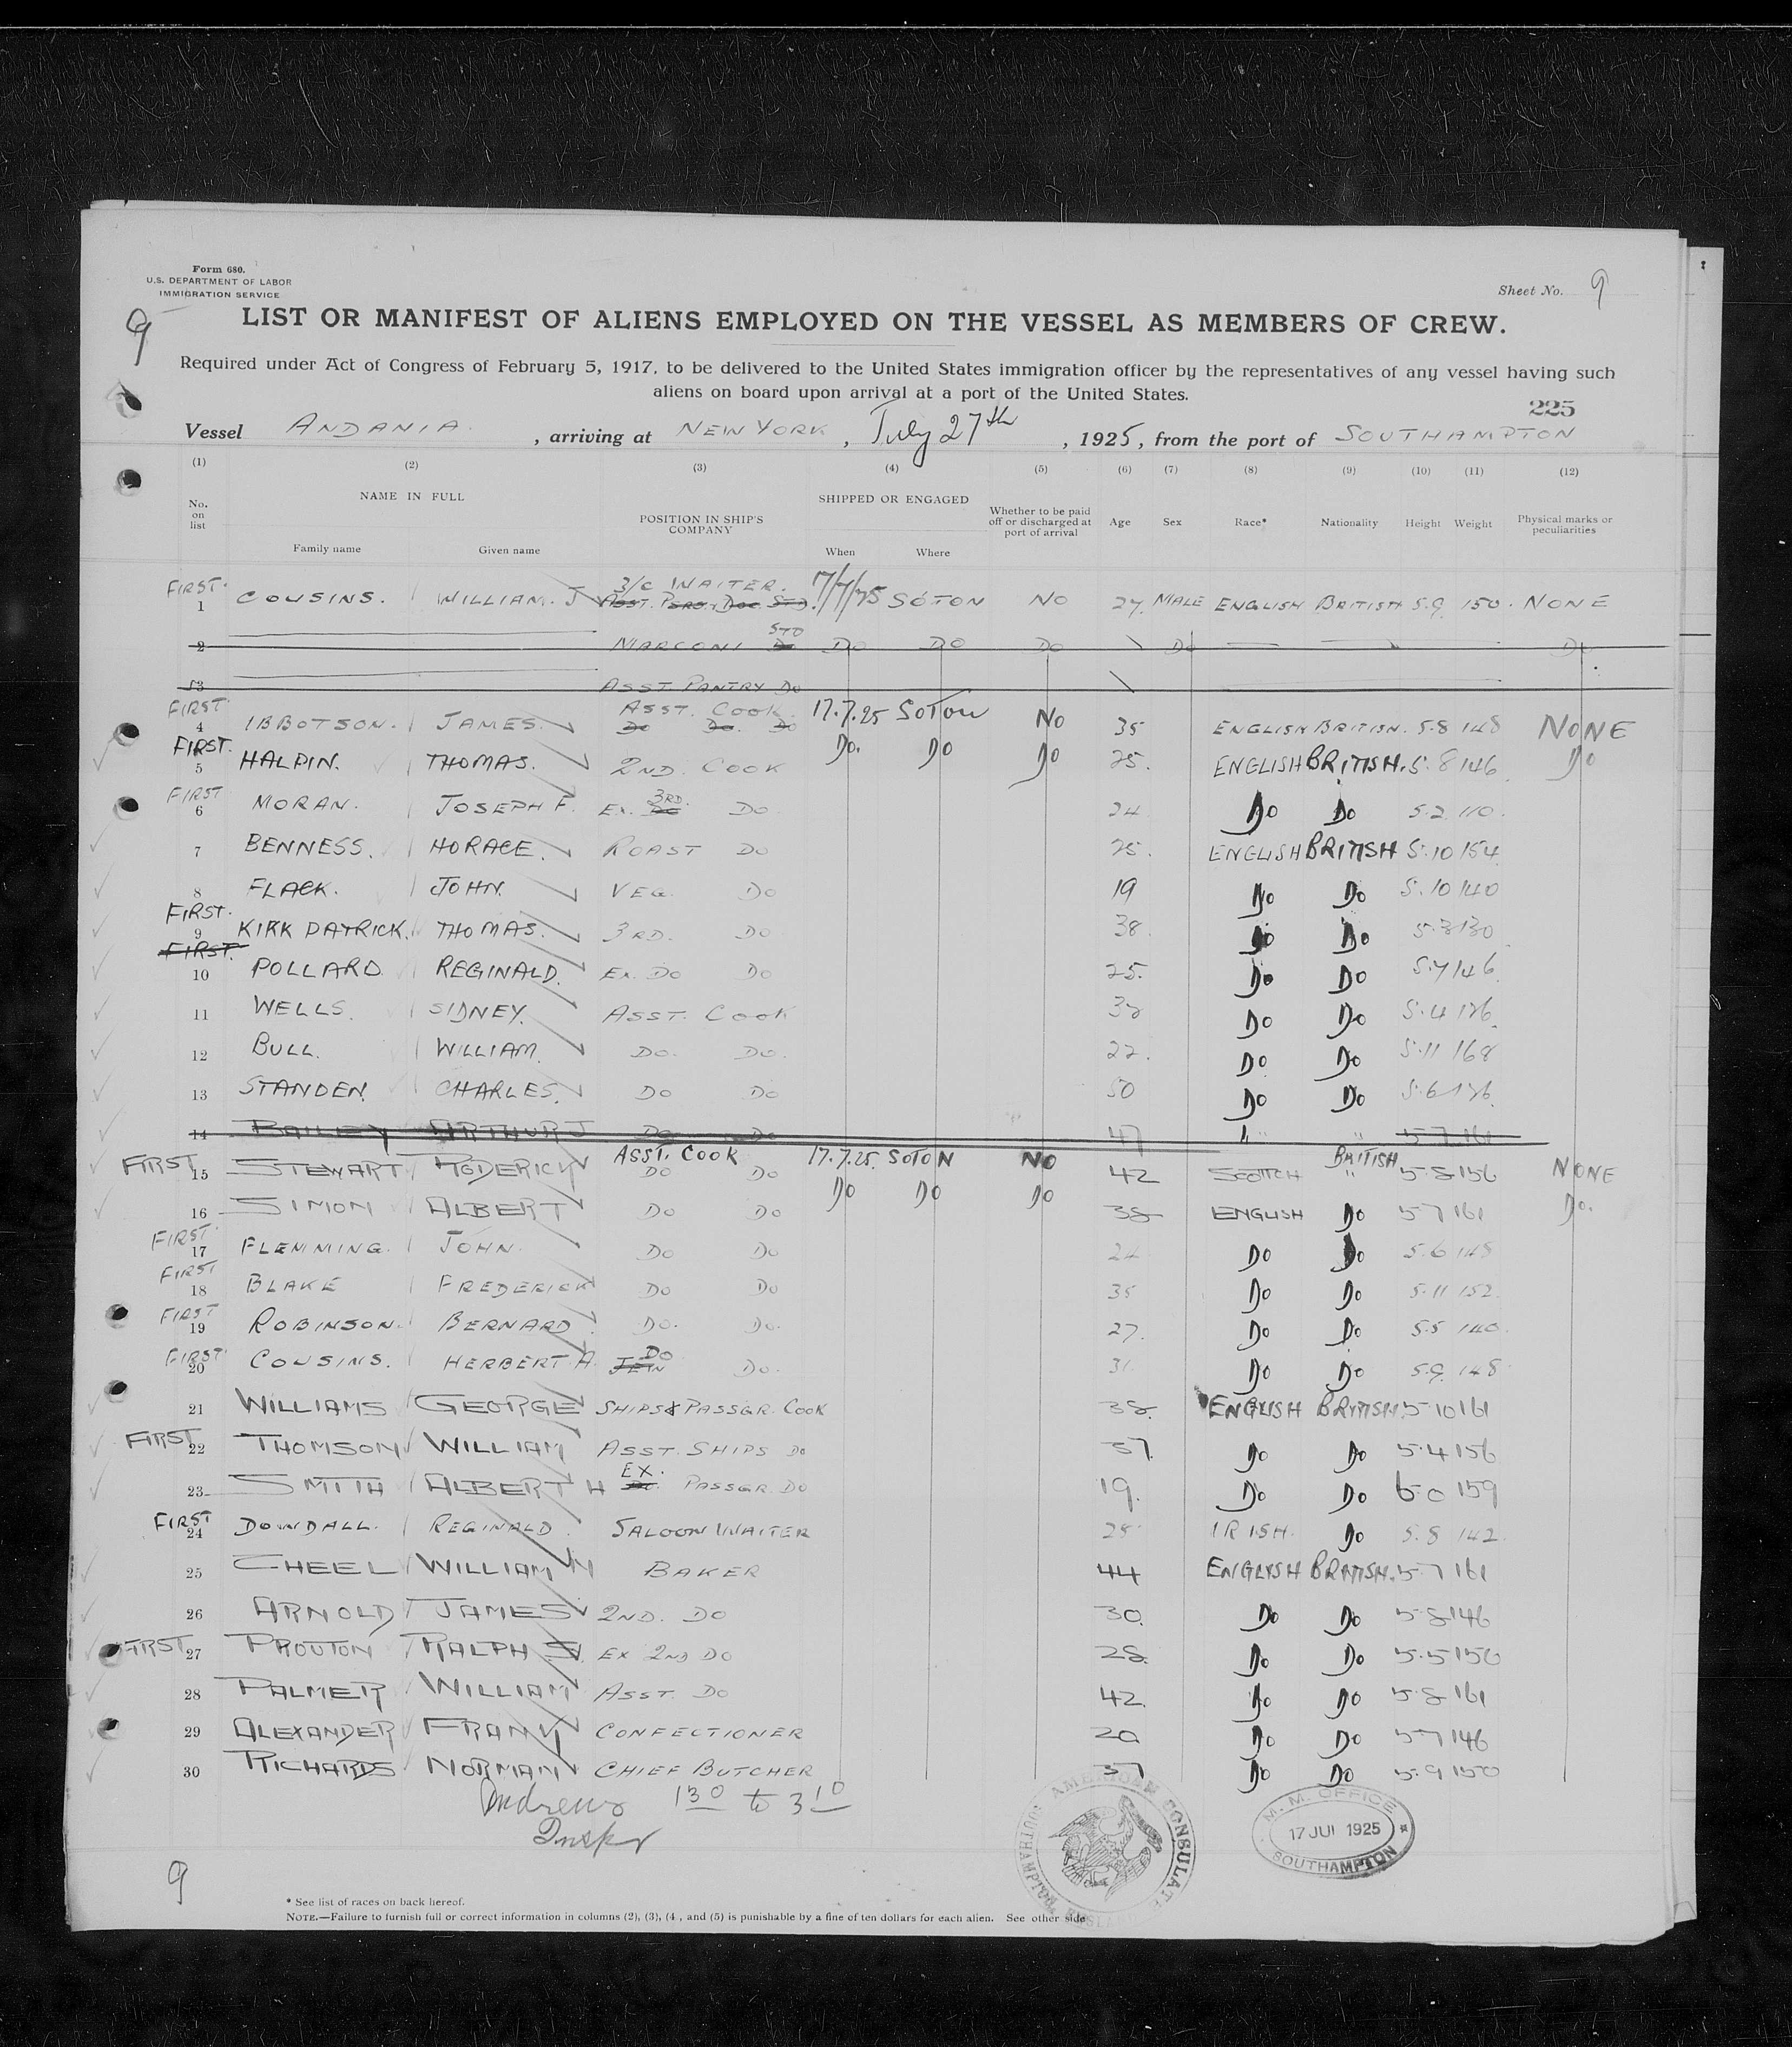 Form 680.
U.S. DEPARTMENT OF LABOR
IMMIGRATION SERVICE
Sheet No. 9
9
LIST OR MANIFEST OF ALIENS EMPLOYED ON THE VESSEL AS MEMBERS OF CREW.
Required under Act of Congress of February 5, 1917, to be delivered to the United States immigration officer by the representatives of any vessel having such
aliens on board upon arrival at a port of the United States.
225
Vessel ANDANIA. , arriving at NEW YORK , July 27th , 1925, from the port of SOUTHAMPTON
(1) (2) (3) (4) (5) (6) (7) (8) (9) (10) (11) (12)
No. on list NAME IN FULL Family name Given name POSITION IN SHIP'S COMPANY SHIPPED OR ENGAGED When Where Whether to be paid off or discharged at port of arrival Age Sex Race* Nationality Height Weight Physical marks or peculiarities
FIRST. 1 COUSINS. WILLIAM. J 3/C WAITER. 17/7/25 SOTON NO 27. MALE ENGLISH BRITISH 5.9. 150. NONE
2 MARCONI STD DO DO DO DO DO
3 ASST. PANTRY DO
FIRST 4 IBBOTSON. JAMES. ASST. COOK. 17.7.25 SOTON NO 35 ENGLISH BRITISH. 5.8 148 NONE
FIRST. 5 HALPIN. THOMAS. 2ND. COOK DO. DO DO 25. ENGLISH BRITISH. 5.8 146 DO
FIRST 6 MORAN. JOSEPH F. EX. 3RD. DO 24 DO DO 5.2. 110.
7 BENNESS. HORACE. ROAST DO 25. ENGLISH BRITISH 5.10 154
8 FLACK. JOHN. VEG. DO 19 DO DO 5.10 140
FIRST. 9 KIRK PATRICK. THOMAS. 3RD. DO 38. DO DO 5.3 130
FIRST. 10 POLLARD REGINALD. EX. DO DO 25. DO DO 5.7 146
11 WELLS. SIDNEY. ASST. COOK DO DO 5.4
12 BULL. WILLIAM. DO. DO. 22. DO DO 5.11 168
13 STANDEN. CHARLES. DO DO 50 DO DO 5.6
14 BAILEY ARTHUR J DO DO 47 " " 5.7 161
FIRST 15 STEWART RODERICK ASST. COOK DO DO 17.7.25. SOTON NO 42 SCOTCH BRITISH " 5.8 156 NONE
16 SIMON ALBERT DO DO DO DO DO 38 ENGLISH DO 5 7 161 DO.
FIRST. 17 FLEMMING. JOHN. DO DO 24 DO DO 5.6 148
FIRST 18 BLAKE FREDERICK DO DO 35 DO DO 5.11 152.
FIRST 19 ROBINSON. BERNARD DO. DO. 27. DO DO 5.5 140.
FIRST. 20 COUSINS. HERBERT A. DO DO. 31. DO DO 5.9. 148
21 WILLIAMS GEORGE SHIPS & PASSGR. COOK 38. ENGLISH BRITISH. 5 10 161
FIRST 22 THOMSON WILLIAM ASST. SHIPS DO 37. DO DO 5.4 156
23 SMITH ALBERT H EX. PASSGR. DO 19. DO DO 6.0 159
FIRST 24 DOWDALL. REGINALD. SALOON WAITER 25 IRISH. DO 5.8 142.
25 CHEEL WILLIAM H BAKER 44 ENGLISH BRITISH. 5.7 161
26 ARNOLD JAMES 2ND. DO 30. DO DO 5.8 146
FIRST 27 PROUTON RALPH S. EX 2ND DO 28. DO DO 5.5 150
28 PALMER WILLIAM ASST. DO 42. DO DO 5.8 161
29 ALEXANDER FRANK CONFECTIONER 20 DO DO 5.7 146
30 RICHARDS NORMAN CHIEF BUTCHER 37 DO DO 5.9 150
Andrews 130 to 310
Inspr
AMERICAN CONSULATE SOUTHAMPTON ENGLAND
M. M. OFFICE
17 JUL 1925
SOUTHAMPTON
9
* See list of races on back hereof.
NOTE.—Failure to furnish full or correct information in columns (2), (3), (4, and (5) is punishable by a fine of ten dollars for each alien. See other side